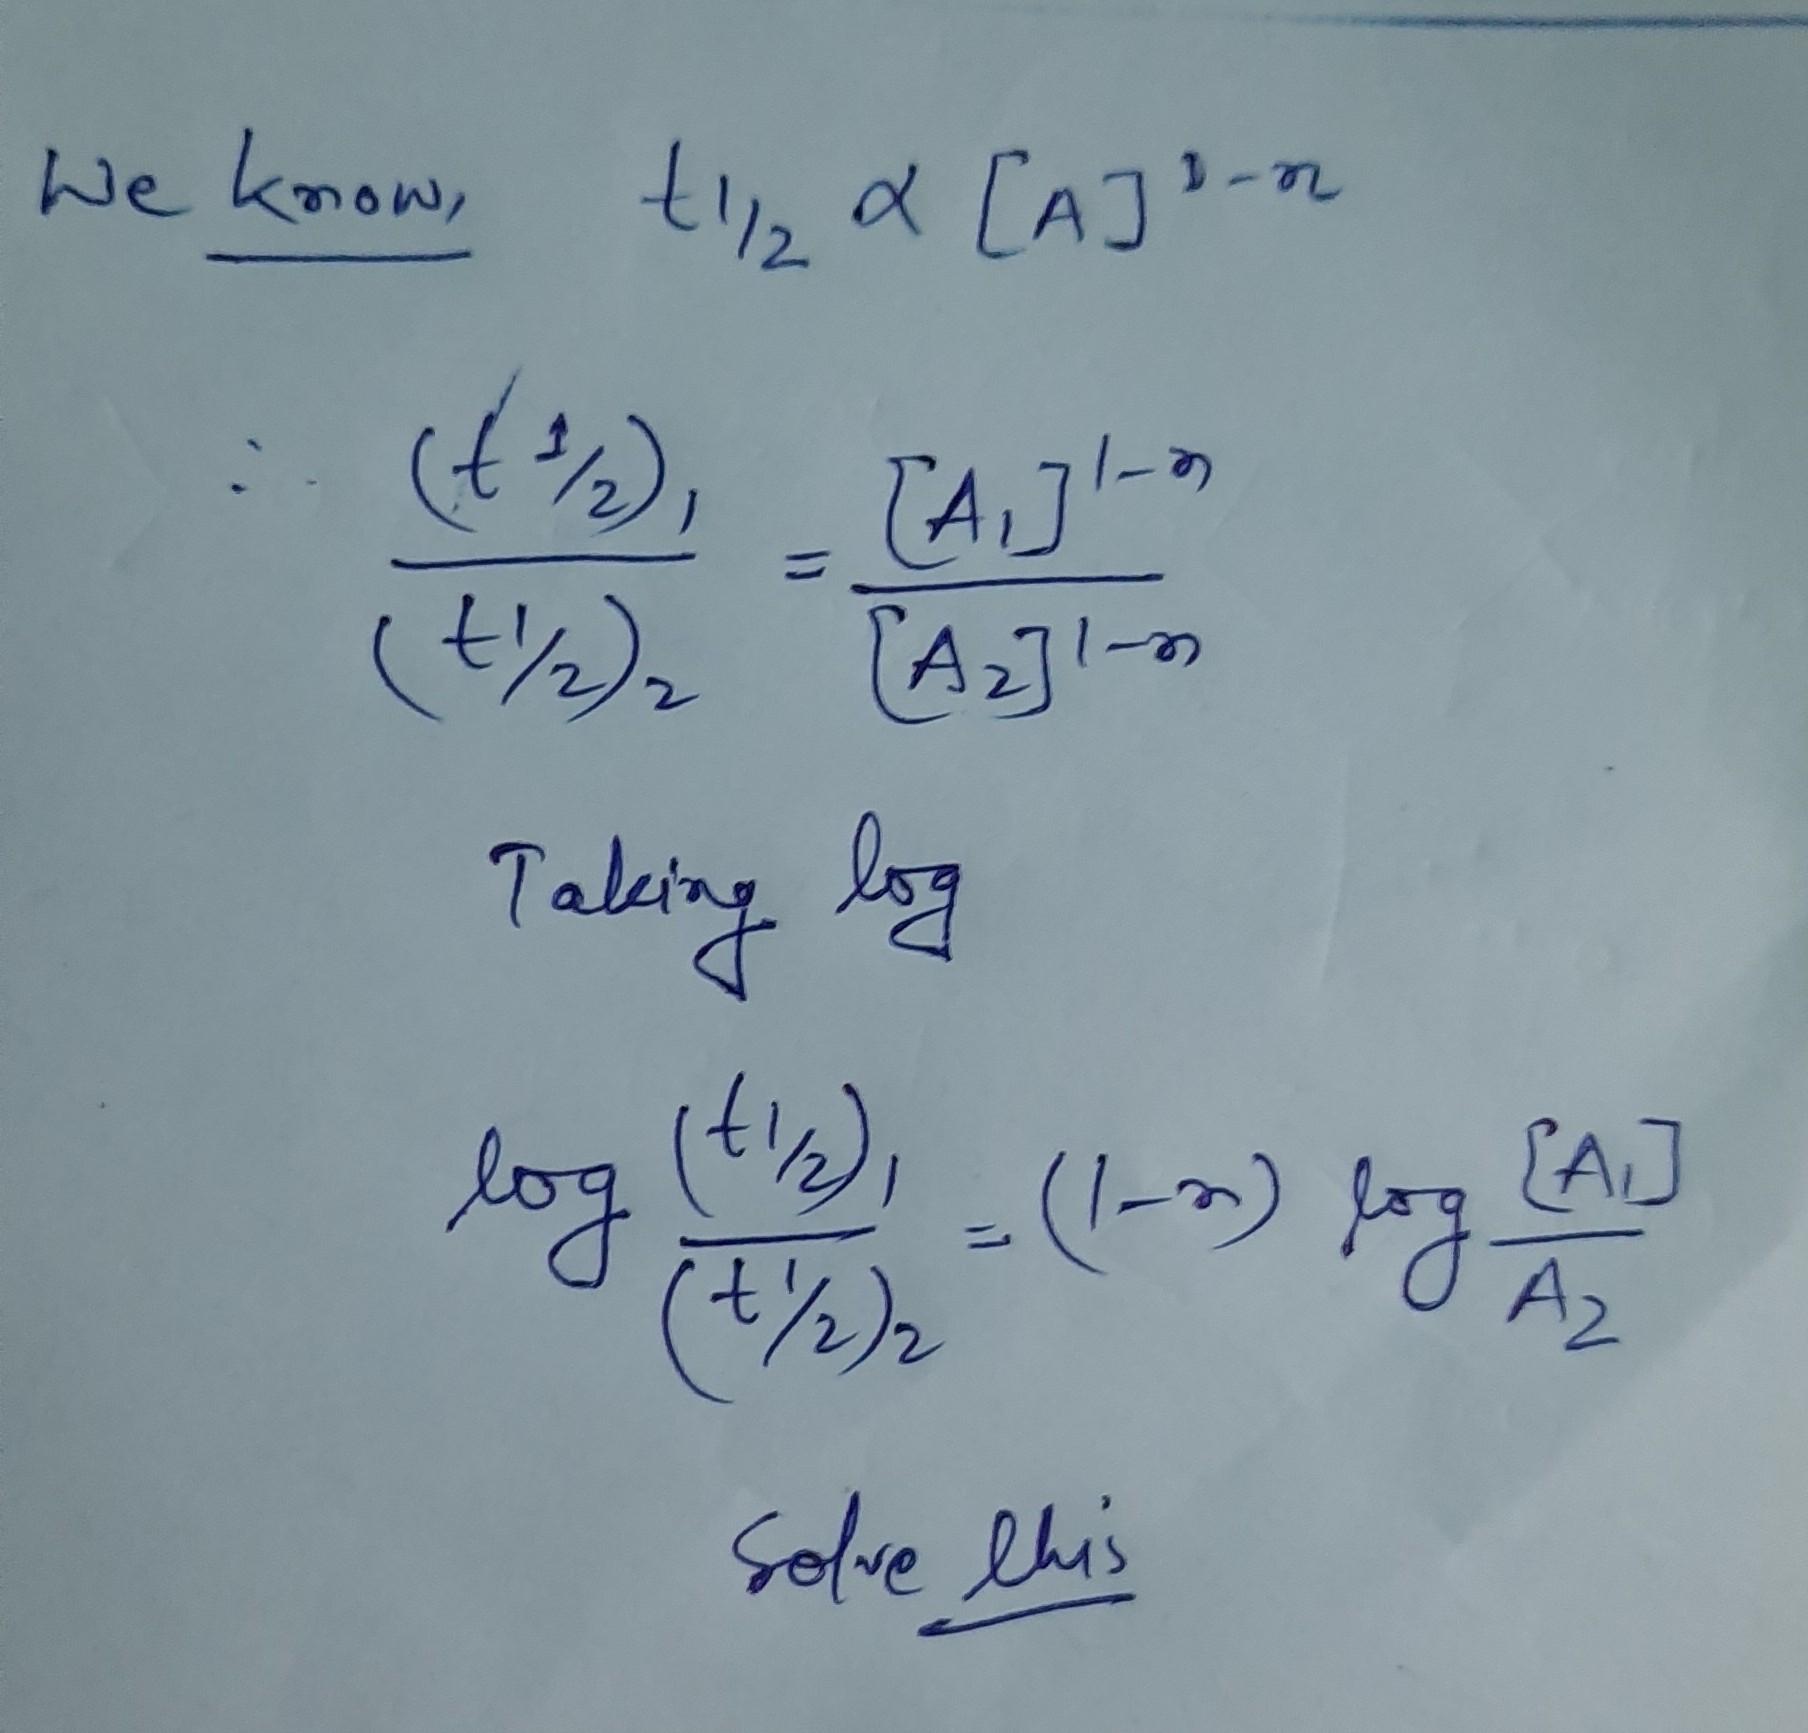 We know, t1/2 α [A]^1-n
∴ (t1/2)₁ / (t1/2)₂ = [A₁]^1-n / [A₂]^1-n
Taking log
log (t1/2)₁ / (t1/2)₂ = (1-n) log [A₁] / A₂
Solve this